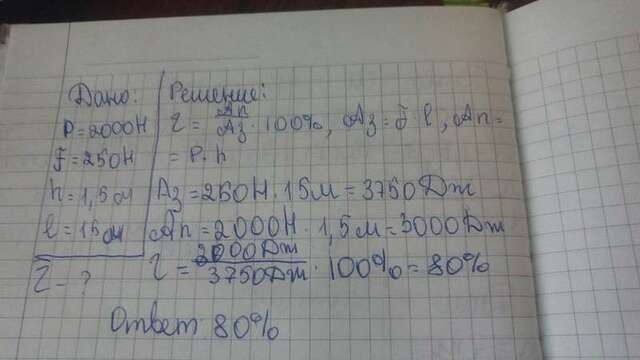 Дано:
P=2000Н
F=250Н
h=1,5м
l=15м
η-?
Решение:
η=Aп/Aз·100%, Aз=F·l, Aп=
=P·h
Aз=250Н·15м=3750Дж
Aп=2000Н·1,5м=3000Дж
η=3000Дж/3750Дж·100%=80%
Ответ: 80%